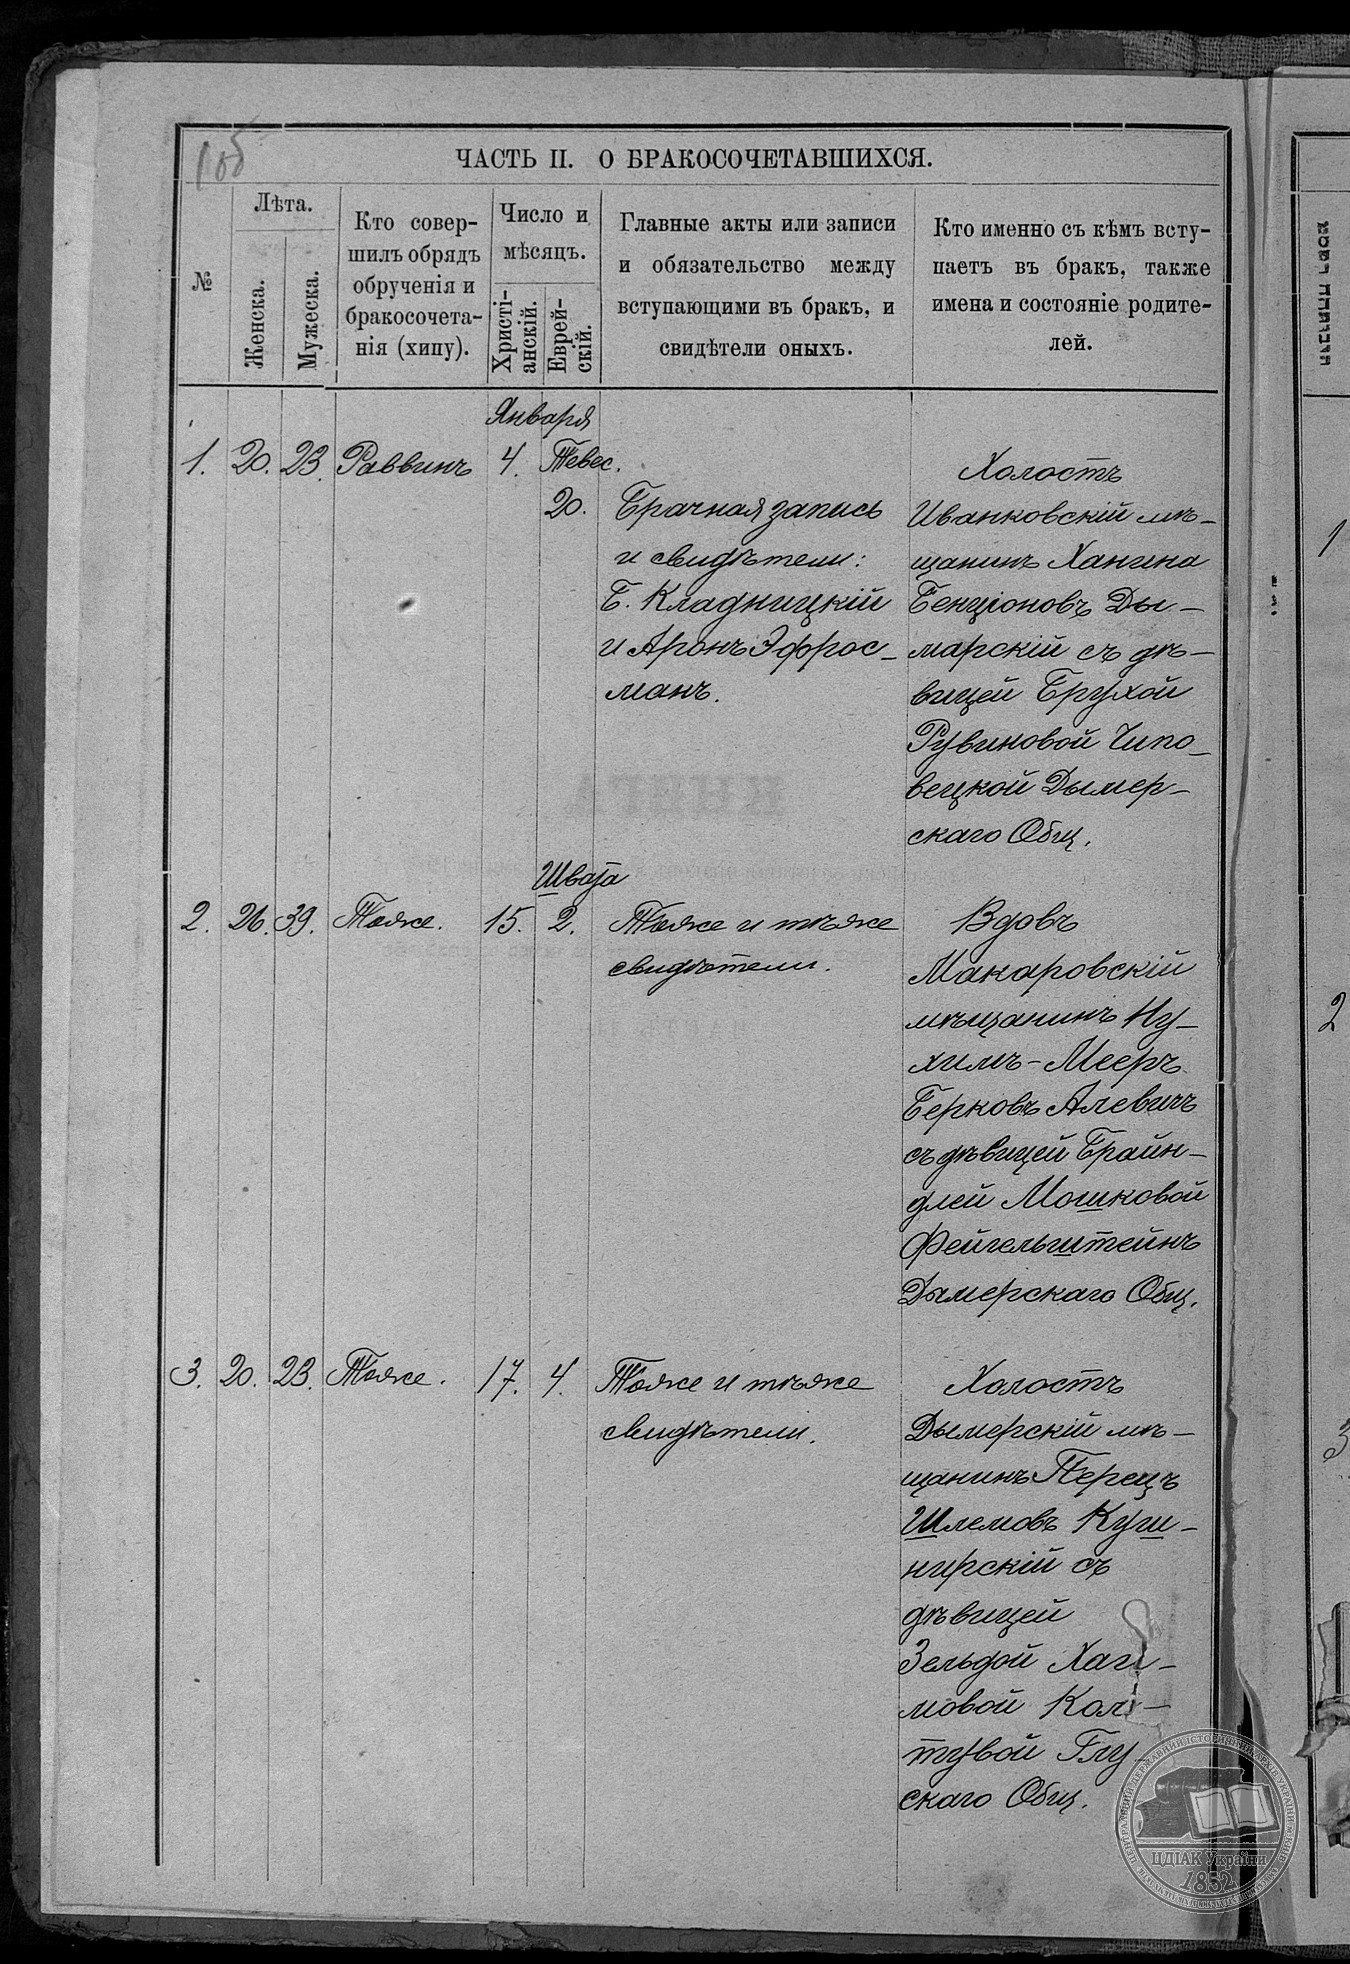 105
ЧАСТЬ II. О БРАКОСОЧЕТАВШИХСЯ.
№
Лѣта.
Женска.
Мужеска.
Кто совер-
шилъ обрядъ
обрученія и
бракосочета-
нія (хипу).
Число и
мѣсяцъ.
Христі-
анскій.
Еврей-
скій.
Главные акты или записи
и обязательство между
вступающими въ бракъ, и
свидѣтели оныхъ.
Кто именно съ кѣмъ всту-
паетъ въ бракъ, также
имена и состояніе родите-
лей.
Января
1. 20. 23. Раввинъ 4. Тевес.
20.
Брачная запись
и свидѣтели:
Б. Кладницкій
и Аронъ Эфрос-
манъ.
Холостъ
Иванковскій мѣ-
щанинъ Ханина
Бенціоновъ Ды-
марскій съ дѣ-
вицей Брухой
Рувиновой Чипо-
вецкой Дымер-
скаго Общ.
Швата
2. 26. 39. Тоже. 15. 2.
Тоже и тѣже
свидѣтели.
Вдовъ
Макаровскій
мѣщанинъ Ну-
химъ-Мееръ
Берковъ Алевичъ
съ дѣвицей Брайн-
длей Мошковой
Фейгельштейнъ
Дымерскаго Общ.
3. 20. 23. Тоже. 17. 4.
Тоже и тѣже
свидѣтели.
Холостъ
Дымерскій мѣ-
щанинъ Перецъ
Шлемовъ Куш-
нирскій съ
дѣвицей
Зельдой Хаи-
мовой Кол-
тувой Глу-
скаго Общ.
1
2
3
ЦДІАК України
1852